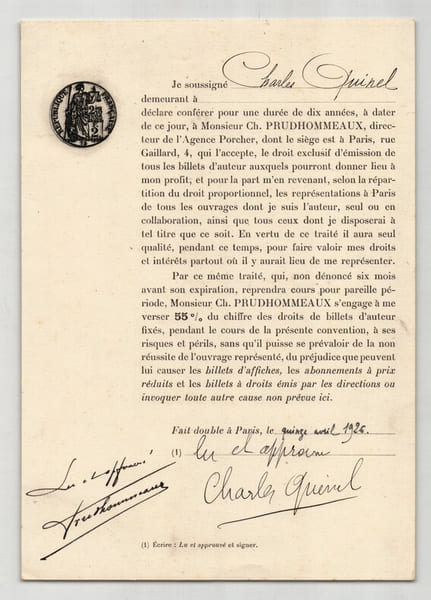 RÉPUBLIQUE FRANÇAISE
Je soussigné Charles Quinel
demeurant à
déclare conférer pour une durée de dix années, à dater
de ce jour, à Monsieur Ch. PRUDHOMMEAUX, direc-
teur de l'Agence Porcher, dont le siège est à Paris, rue
Gaillard, 4, qui l'accepte, le droit exclusif d'émission de
tous les billets d'auteur auxquels pourront donner lieu à
mon profit, et pour la part m'en revenant, selon la répar-
tition du droit proportionnel, les représentations à Paris
de tous les ouvrages dont je suis l'auteur, seul ou en
collaboration, ainsi que tous ceux dont je disposerai à
tel titre que ce soit. En vertu de ce traité il aura seul
qualité, pendant ce temps, pour faire valoir mes droits
et intérêts partout où il y aurait lieu de me représenter.
Par ce même traité, qui, non dénoncé six mois
avant son expiration, reprendra cours pour pareille pé-
riode, Monsieur Ch. PRUDHOMMEAUX s'engage à me
verser 55 % du chiffre des droits de billets d'auteur
fixés, pendant le cours de la présente convention, à ses
risques et périls, sans qu'il puisse se prévaloir de la non
réussite de l'ouvrage représenté, du préjudice que peuvent
lui causer les billets d'affiches, les abonnements à prix
réduits et les billets à droits émis par les directions ou
invoquer toute autre cause non prévue ici.
Fait double à Paris, le quinze avril 1926.
(1) lu et approuvé
Charles Quinel
Lu et approuvé
Prudhommeaux
(1) Écrire : Lu et approuvé et signer.